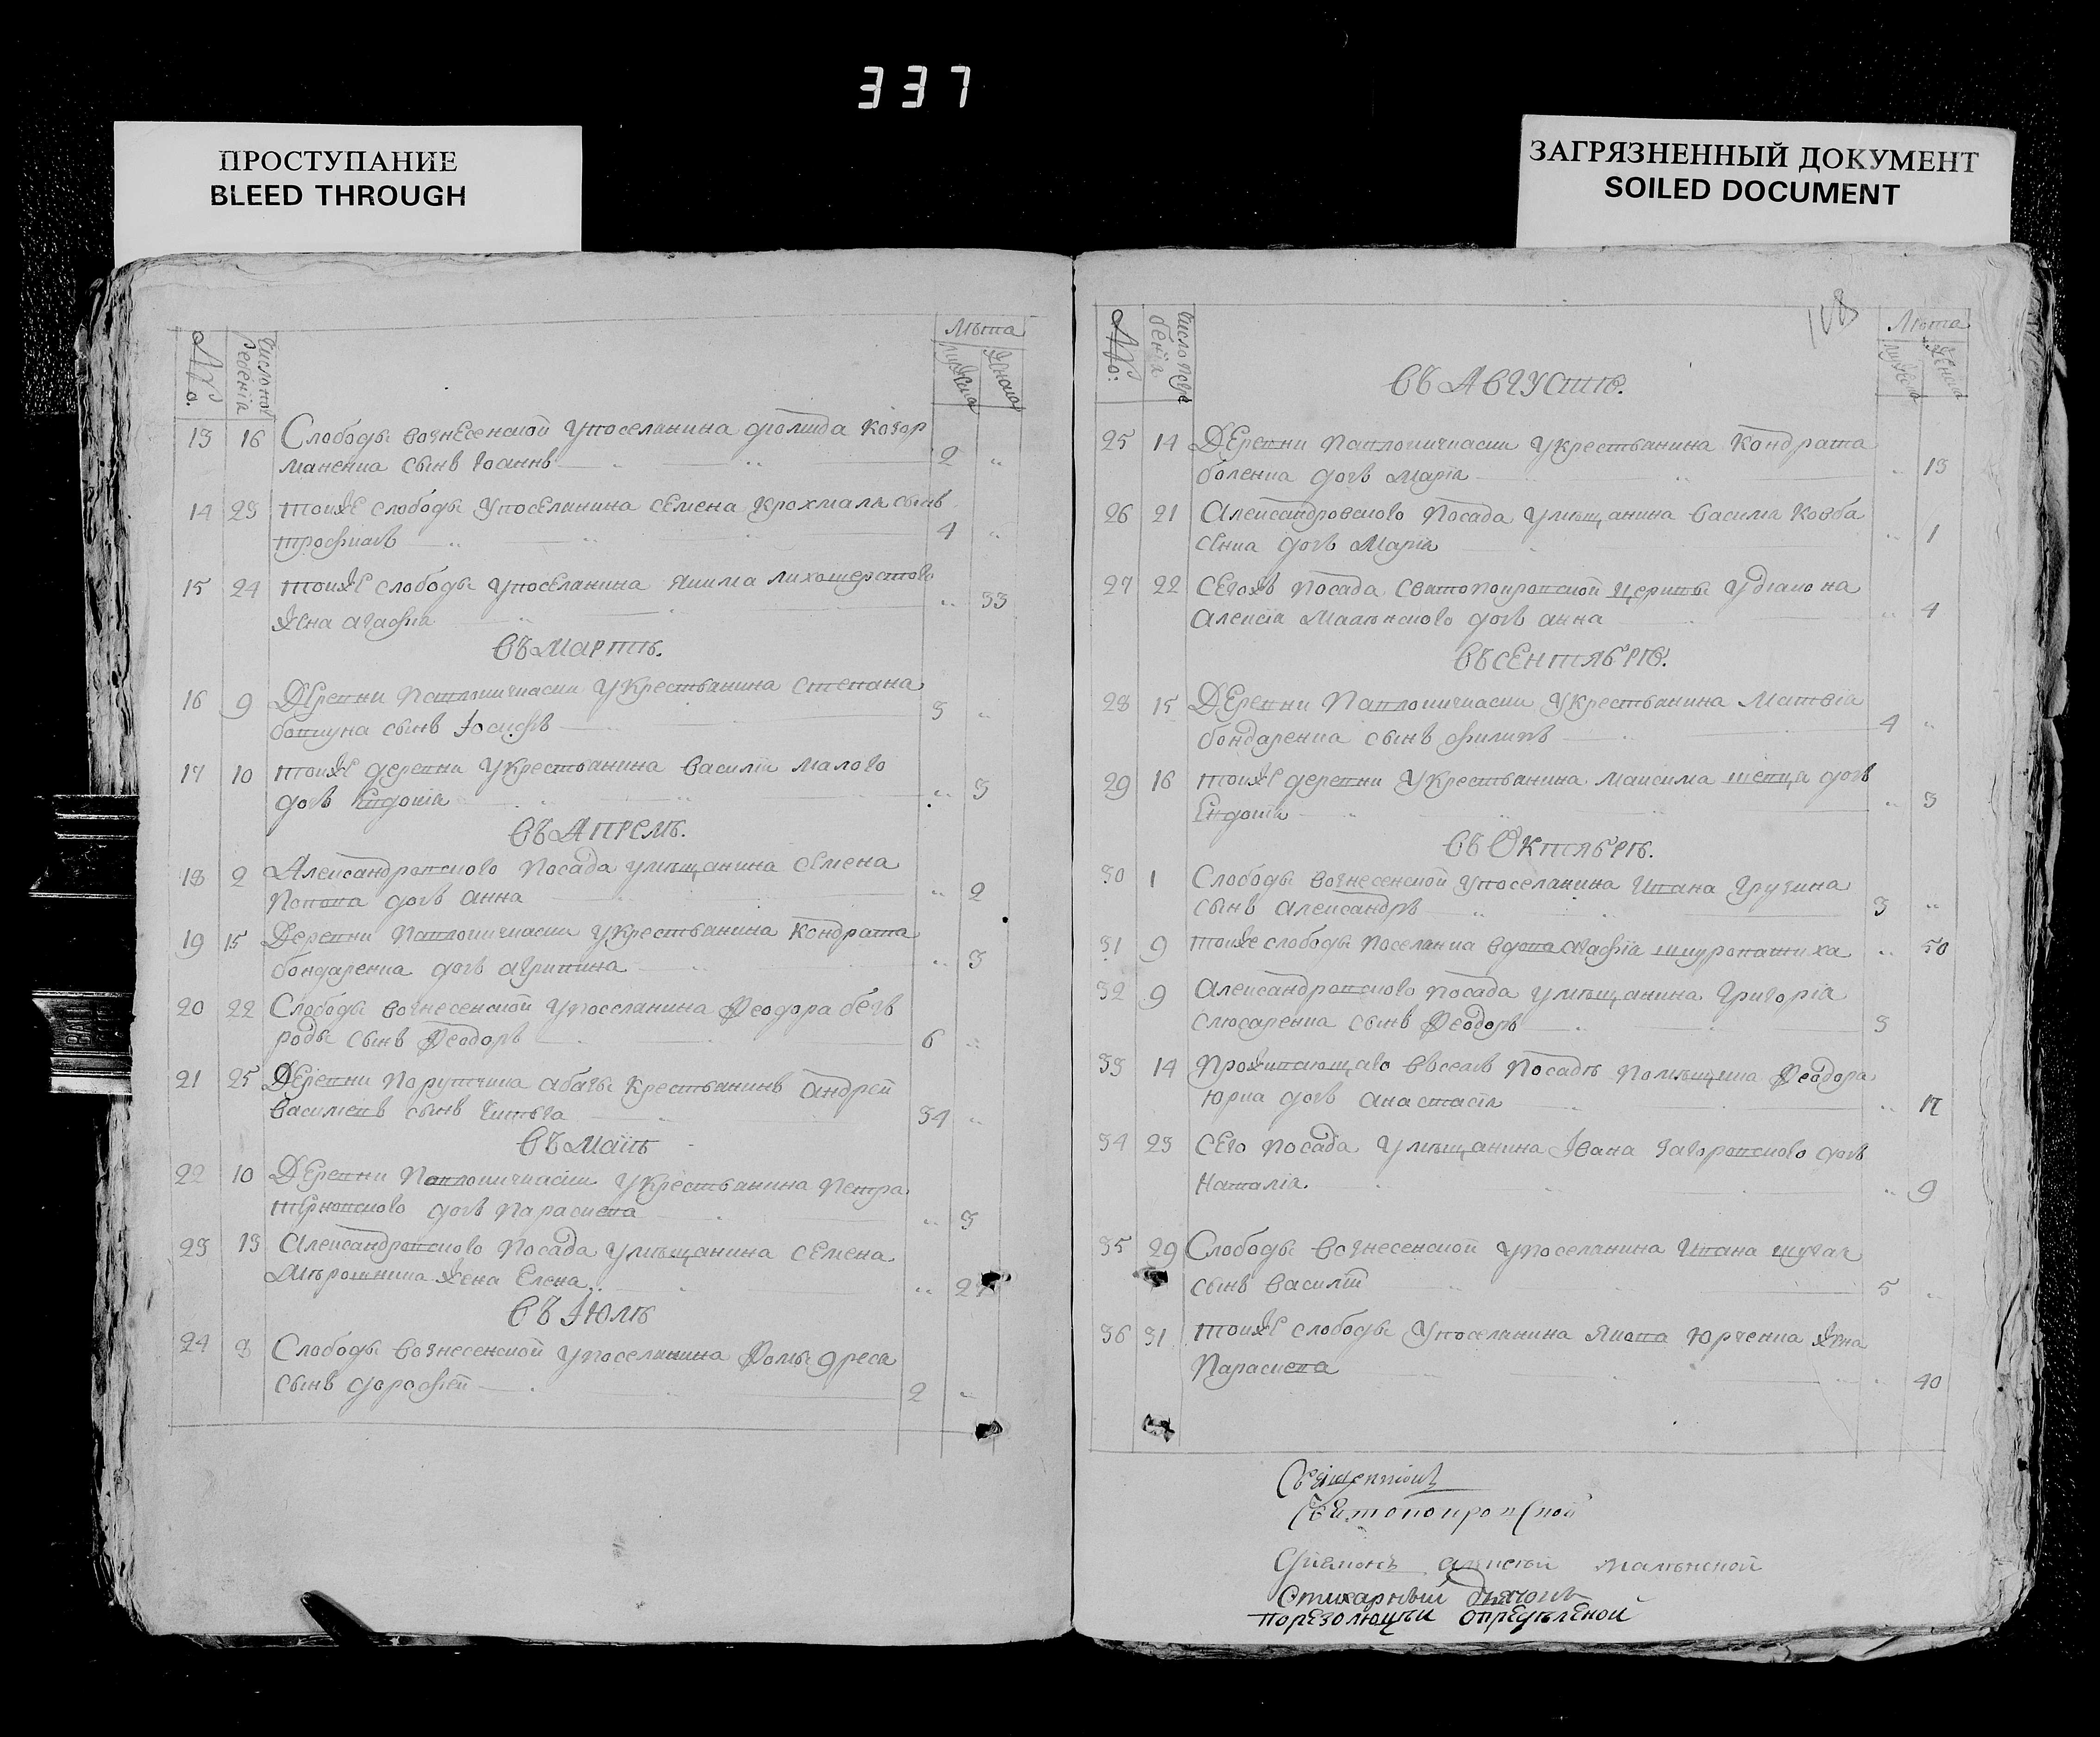 337
ПРОСТУПАНИЕ
BLEED THROUGH
ЗАГРЯЗНЕННЫЙ ДОКУМЕНТ
SOILED DOCUMENT
Лѣта
13 16 Слободы вознесенской упоселанина
сынъ Іоаннъ 2 "
14 23 тоижЕ слободы упосЕланина сЕмена крохмаля сынъ
трофимъ 4 "
15 24 тоижЕ слободы упосЕланина якима лихошерстого
жЕна агафиа " 33
въ Мартѣ.
16 9 ДЕревни Павловичкасии укрестьянина стефана
сынъ Іосифъ 3 "
17 10 тоижЕ деревни укрестьянина василия малого
дочъ Евдокія " 3
въ Апрелѣ.
18 2 Александровского Посада умѣщанина сЕмена
Попова дочъ анна " 2
19 15 Деревни Павловичкасии укрестьянина кондрата
бондаренка дочъ агрипина " 3
20 22 Слободы вознесенской упоселанина Феодора безъ
роды сынъ Феодоръ 6 "
21 25 ДЕревни Порутчика абазы крестьянинъ андрей
васильевъ сынъ 34 "
въ Маіѣ
22 10 ДЕревни Павловичкасии укрестьянина Петра
тЕрновского дочъ Параскева " 3
23 13 Александровского Посада умѣщанина сЕмена
Мѣрошника жена Елена " 27
въ Іюлѣ
24 8 Слободы вознесенской упоселанина Фомы
сынъ дорофей 2 "
108
Лѣта
въ Августѣ.
25 14 ДЕревни Павловичкасии укрестьянина Кондрата
дочъ Маріа " 13
26 21 Александровского Посада умѣщанина василия ковба
сЕнка дочъ Маріа " 1
27 22 сЕгожъ Посада Святопокровской церквы удіакона
Алексіа дочъ анна " 4
въ сЕнтябрѣ.
28 15 ДЕревни Павловичкасии укрестьянина Матвѣя
бондаренка сынъ филипъ 4 "
29 16 тоижЕ деревни укрестьянина максима шевца дочъ
Евдокіа " 3
въ Октябрѣ.
30 1 Слободы вознесенской упоселанина Ивана Грузина
сынъ александръ 3 "
31 9 тоиже слободы поселанка вдова агафіа " 50
32 9 Александровского посада умѣщанина Григоріа
слюсаренка сынъ Феодоръ 3
33 14 Прожитающаго въсемъ Посадѣ Помѣщика Феодора
дочъ анастасія "
34 23 сЕго посада умѣщанина Івана дочъ
Наталіа " 9
35 29 Слободы вознесенской упоселанина Ивана
сынъ василій 5 "
36 31 тоижЕ слободы упоселанина якова Юрченка жЕна
Параскева " 40
Святопокровской
алексей
Стихарный дьячокъ
порЕзолюціи опрЕдѣленой